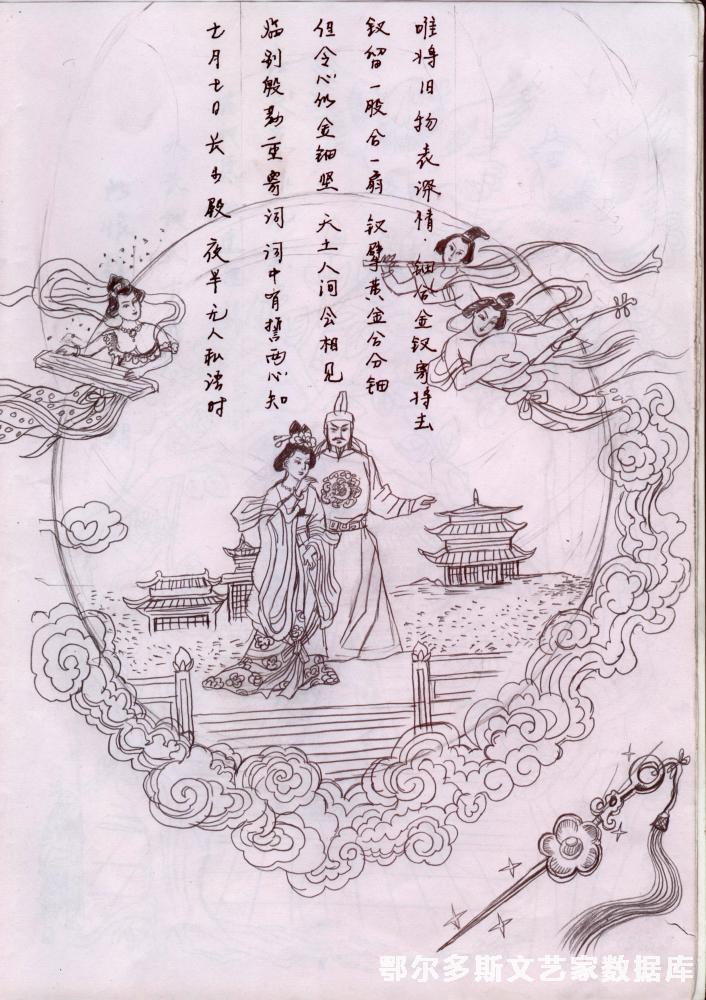 唯将旧物表深情 钿合金钗寄将去
钗留一股合一扇 钗擘黄金合分钿
但令心似金钿坚 天上人间会相见
临别殷勤重寄词 词中有誓两心知
七月七日长生殿 夜半无人私语时
鄂尔多斯文艺家数据库